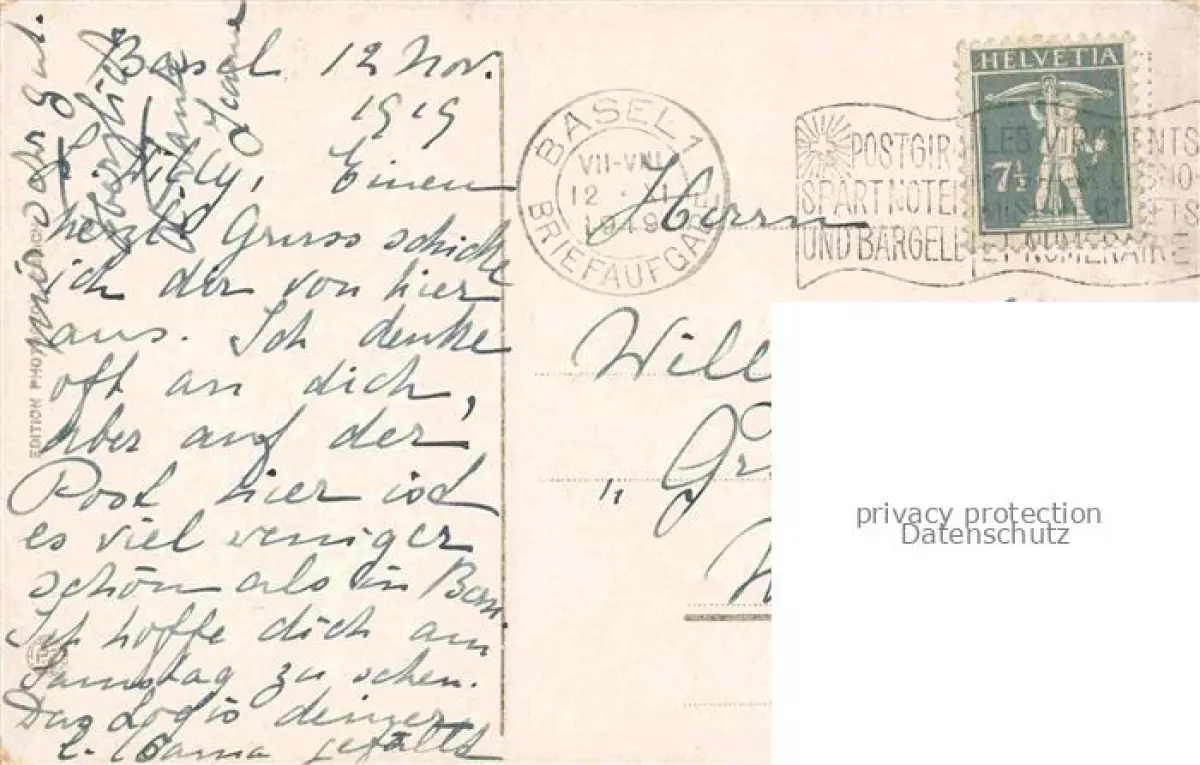 Basel 12 Nov.
1919
L. Willy, Einen
herzl. Gruss schicke
ich dir von hier
aus. Ich denke
oft an dich,
aber auf der
Post hier ist
es viel weniger
schön als in Bern.
Ich hoffe dich am
Samstag zu sehen.
Das Logis deiner
l. Mama gefällt
mir sehr gut.
Herzlich
Jeanne
EDITION PHOT
BASEL 1
VII-VIII
12
1919
BRIEFAUFGABE
HELVETIA
7½
POSTGIR LES VIREMENTS
SPART NOTEN
UND BARGELD ET NUMERAIRE
Herrn
Will
„ Gr
privacy protection
Datenschutz